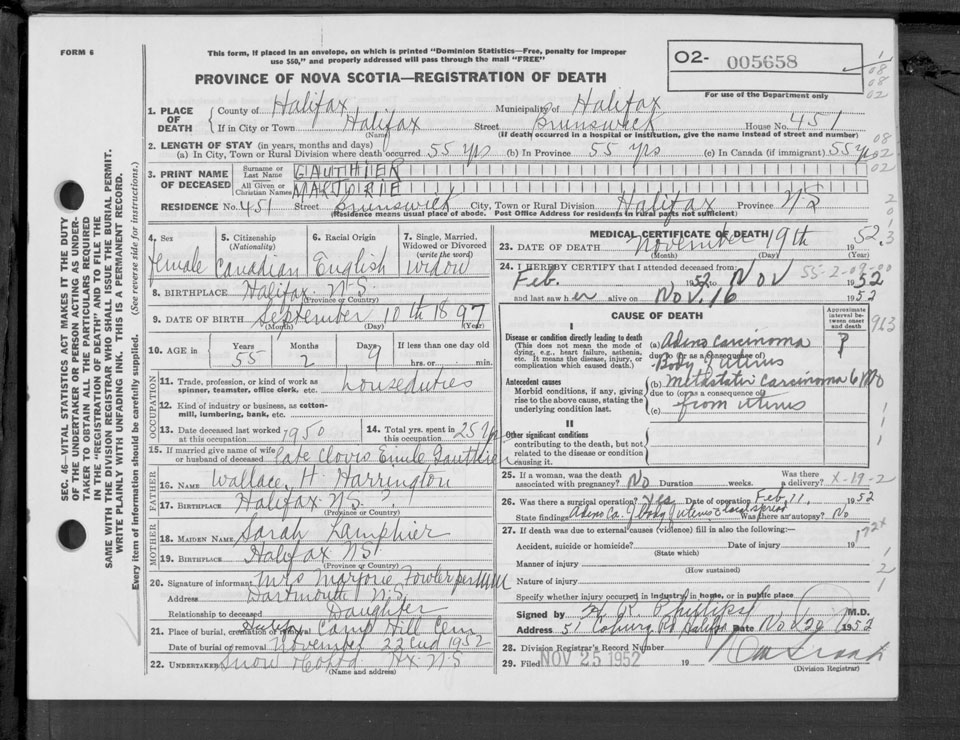 FORM 6
This form, if placed in an envelope, on which is printed "Dominion Statistics—Free, penalty for improper
use $50," and properly addressed will pass through the mail "FREE"
PROVINCE OF NOVA SCOTIA—REGISTRATION OF DEATH
O2- 005658
For use of the Department only
1
08
08
02
1. PLACE OF DEATH
County of Halifax Municipality of Halifax
If in City or Town Halifax Street Brunswick House No. 451
(Name) (If death occurred in a hospital or institution, give the name instead of street and number)
2. LENGTH OF STAY (in years, months and days)
(a) In City, Town or Rural Division where death occurred 55 yrs (b) In Province 55 yrs (c) In Canada (if immigrant) 55 yrs
08
02
02
3. PRINT NAME OF DECEASED
Surname or Last Name GAUTHIER
All Given or Christian Names MARJORIE
RESIDENCE No. 451 Street Brunswick City, Town or Rural Division Halifax Province N S
(Residence means usual place of abode. Post Office Address for residents in rural parts not sufficient)
4. Sex female
5. Citizenship (Nationality) Canadian
6. Racial Origin English
7. Single, Married, Widowed or Divorced (write the word) widow
8. BIRTHPLACE Halifax N.S.
(Province or Country)
9. DATE OF BIRTH September 10th 1897
(Month) (Day) (Year)
10. AGE in Years 55 Months 2 Days 9 If less than one day old hrs. or min.
OCCUPATION
11. Trade, profession, or kind of work as spinner, teamster, office clerk, etc. houseduties
12. Kind of industry or business, as cotton-mill, lumbering, bank, etc.
13. Date deceased last worked at this occupation 1950
14. Total yrs. spent in this occupation 25 yrs
15. If married give name of wife or husband of deceased Late Clovis Emile Gauthier
FATHER
16. NAME Wallace H. Harrington
17. BIRTHPLACE Halifax N.S. ?
(Province or Country)
MOTHER
18. MAIDEN NAME Sarah Lamphier
19. BIRTHPLACE Halifax NS
(Province or Country)
20. Signature of informant Mrs Marjorie Fowler per
Address Dartmouth N.S.
Relationship to deceased Daughter
21. Place of burial, cremation or removal Halifax Camp Hill Cem
Date of burial or removal November 22nd 1952
22. UNDERTAKER Snow & Co Hx N S
(Name and address)
MEDICAL CERTIFICATE OF DEATH
23. DATE OF DEATH November 19th 1952
(Month) (Day)
24. I HEREBY CERTIFY that I attended deceased from:
55-2-09-00
Feb. 1952 to Nov 1952
and last saw her alive on Nov. 16 1952
CAUSE OF DEATH
Approximate interval between onset and death
I
Disease or condition directly leading to death
(This does not mean the mode of dying, e.g., heart failure, asthenia, etc. It means the disease, injury, or complication which caused death.)
(a) Adeno Carcinoma ?
due to (or as a consequence of)
Body of uterus
Antecedent causes
Morbid conditions, if any, giving rise to the above cause, stating the underlying condition last.
(b) Metastatic Carcinoma 6 mo
due to (or as a consequence of)
(c) from uterus
II
Other significant conditions
contributing to the death, but not related to the disease or condition causing it.
25. If a woman, was the death associated with pregnancy? No Duration weeks. Was there a delivery?
X-19-2
26. Was there a surgical operation? Yes Date of operation Feb. 11, 1952
State findings Adeno Ca. of body of uterus & local spread Was there an autopsy? No
27. If death was due to external causes (violence) fill in also the following:—
Accident, suicide or homicide? Date of injury 19
(State which)
Manner of injury
(How sustained)
Nature of injury
Specify whether injury occurred in industry, in home, or in public place
172x
Signed by H R Phillips M.D.
Address 51 Coburg Rd Halifax Date Nov 20 1952
28. Division Registrar's Record Number
29. Filed NOV 25 1952 19
(Division Registrar)
SEC. 46—VITAL STATISTICS ACT MAKES IT THE DUTY
OF THE UNDERTAKER OR PERSON ACTING AS UNDER-
TAKER TO OBTAIN ALL THE PARTICULARS REQUIRED
IN THE "REGISTRATION OF DEATH" AND TO FILE THE
SAME WITH THE DIVISION REGISTRAR WHO SHALL ISSUE THE BURIAL PERMIT.
WRITE PLAINLY WITH UNFADING INK. THIS IS A PERMANENT RECORD.
Every item of information should be carefully supplied. (See reverse side for instructions.)